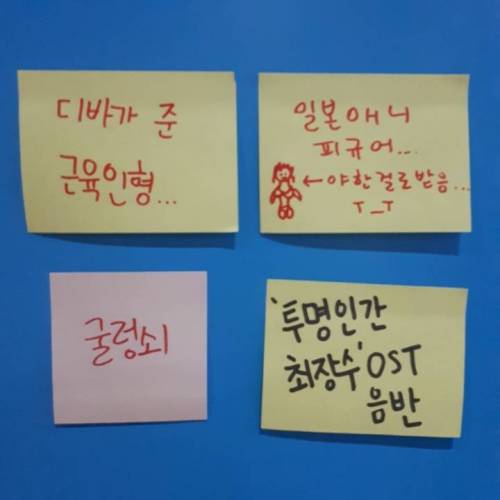 디바가 준
근육인형...
일본애니
피규어...
←야한걸로받음...
T_T
굴렁쇠
'투명인간
최장수' OST
음반